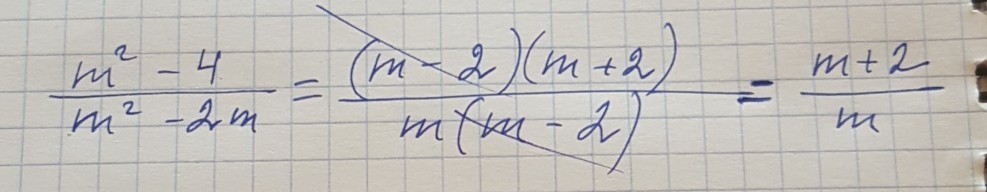 m² - 4 / m² - 2m = (m - 2)(m + 2) / m(m - 2) = m + 2 / m